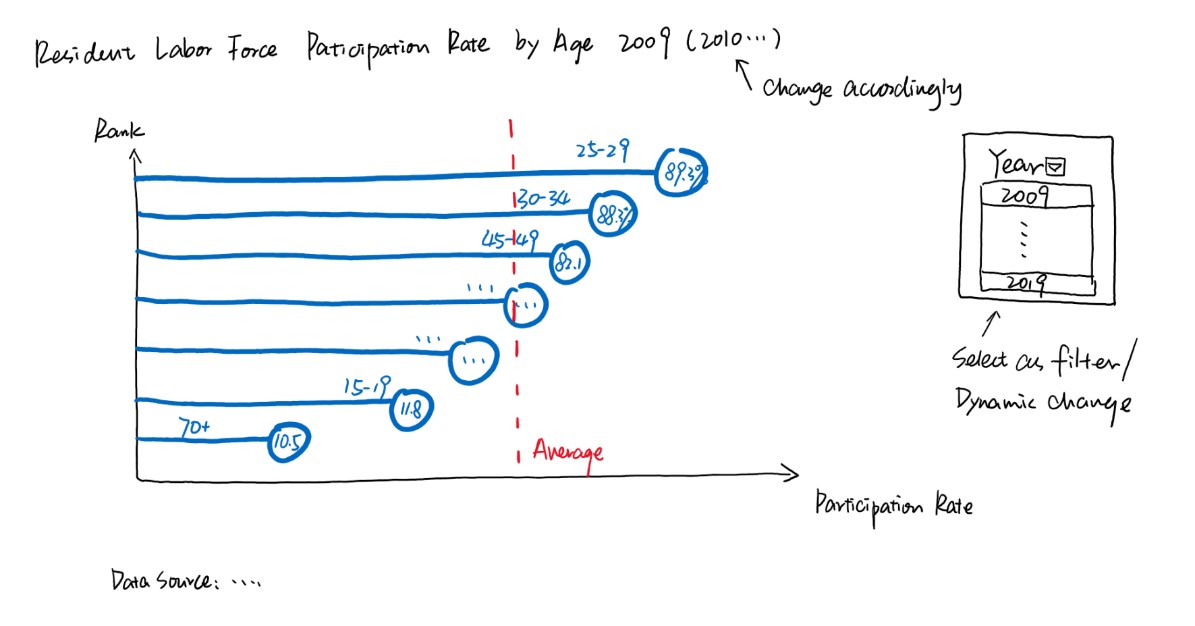 Resident Labor Force Paticipation Rate by Age 2009 (2010...)
change accordingly
Rank
25-29
89.3%
30-34
88.3%
45-49
82.1
...
...
...
...
15-19
11.8
70+
10.5
Average
Participation Rate
Year
2009
2019
Select as filter/
Dynamic change
Data Source: ....